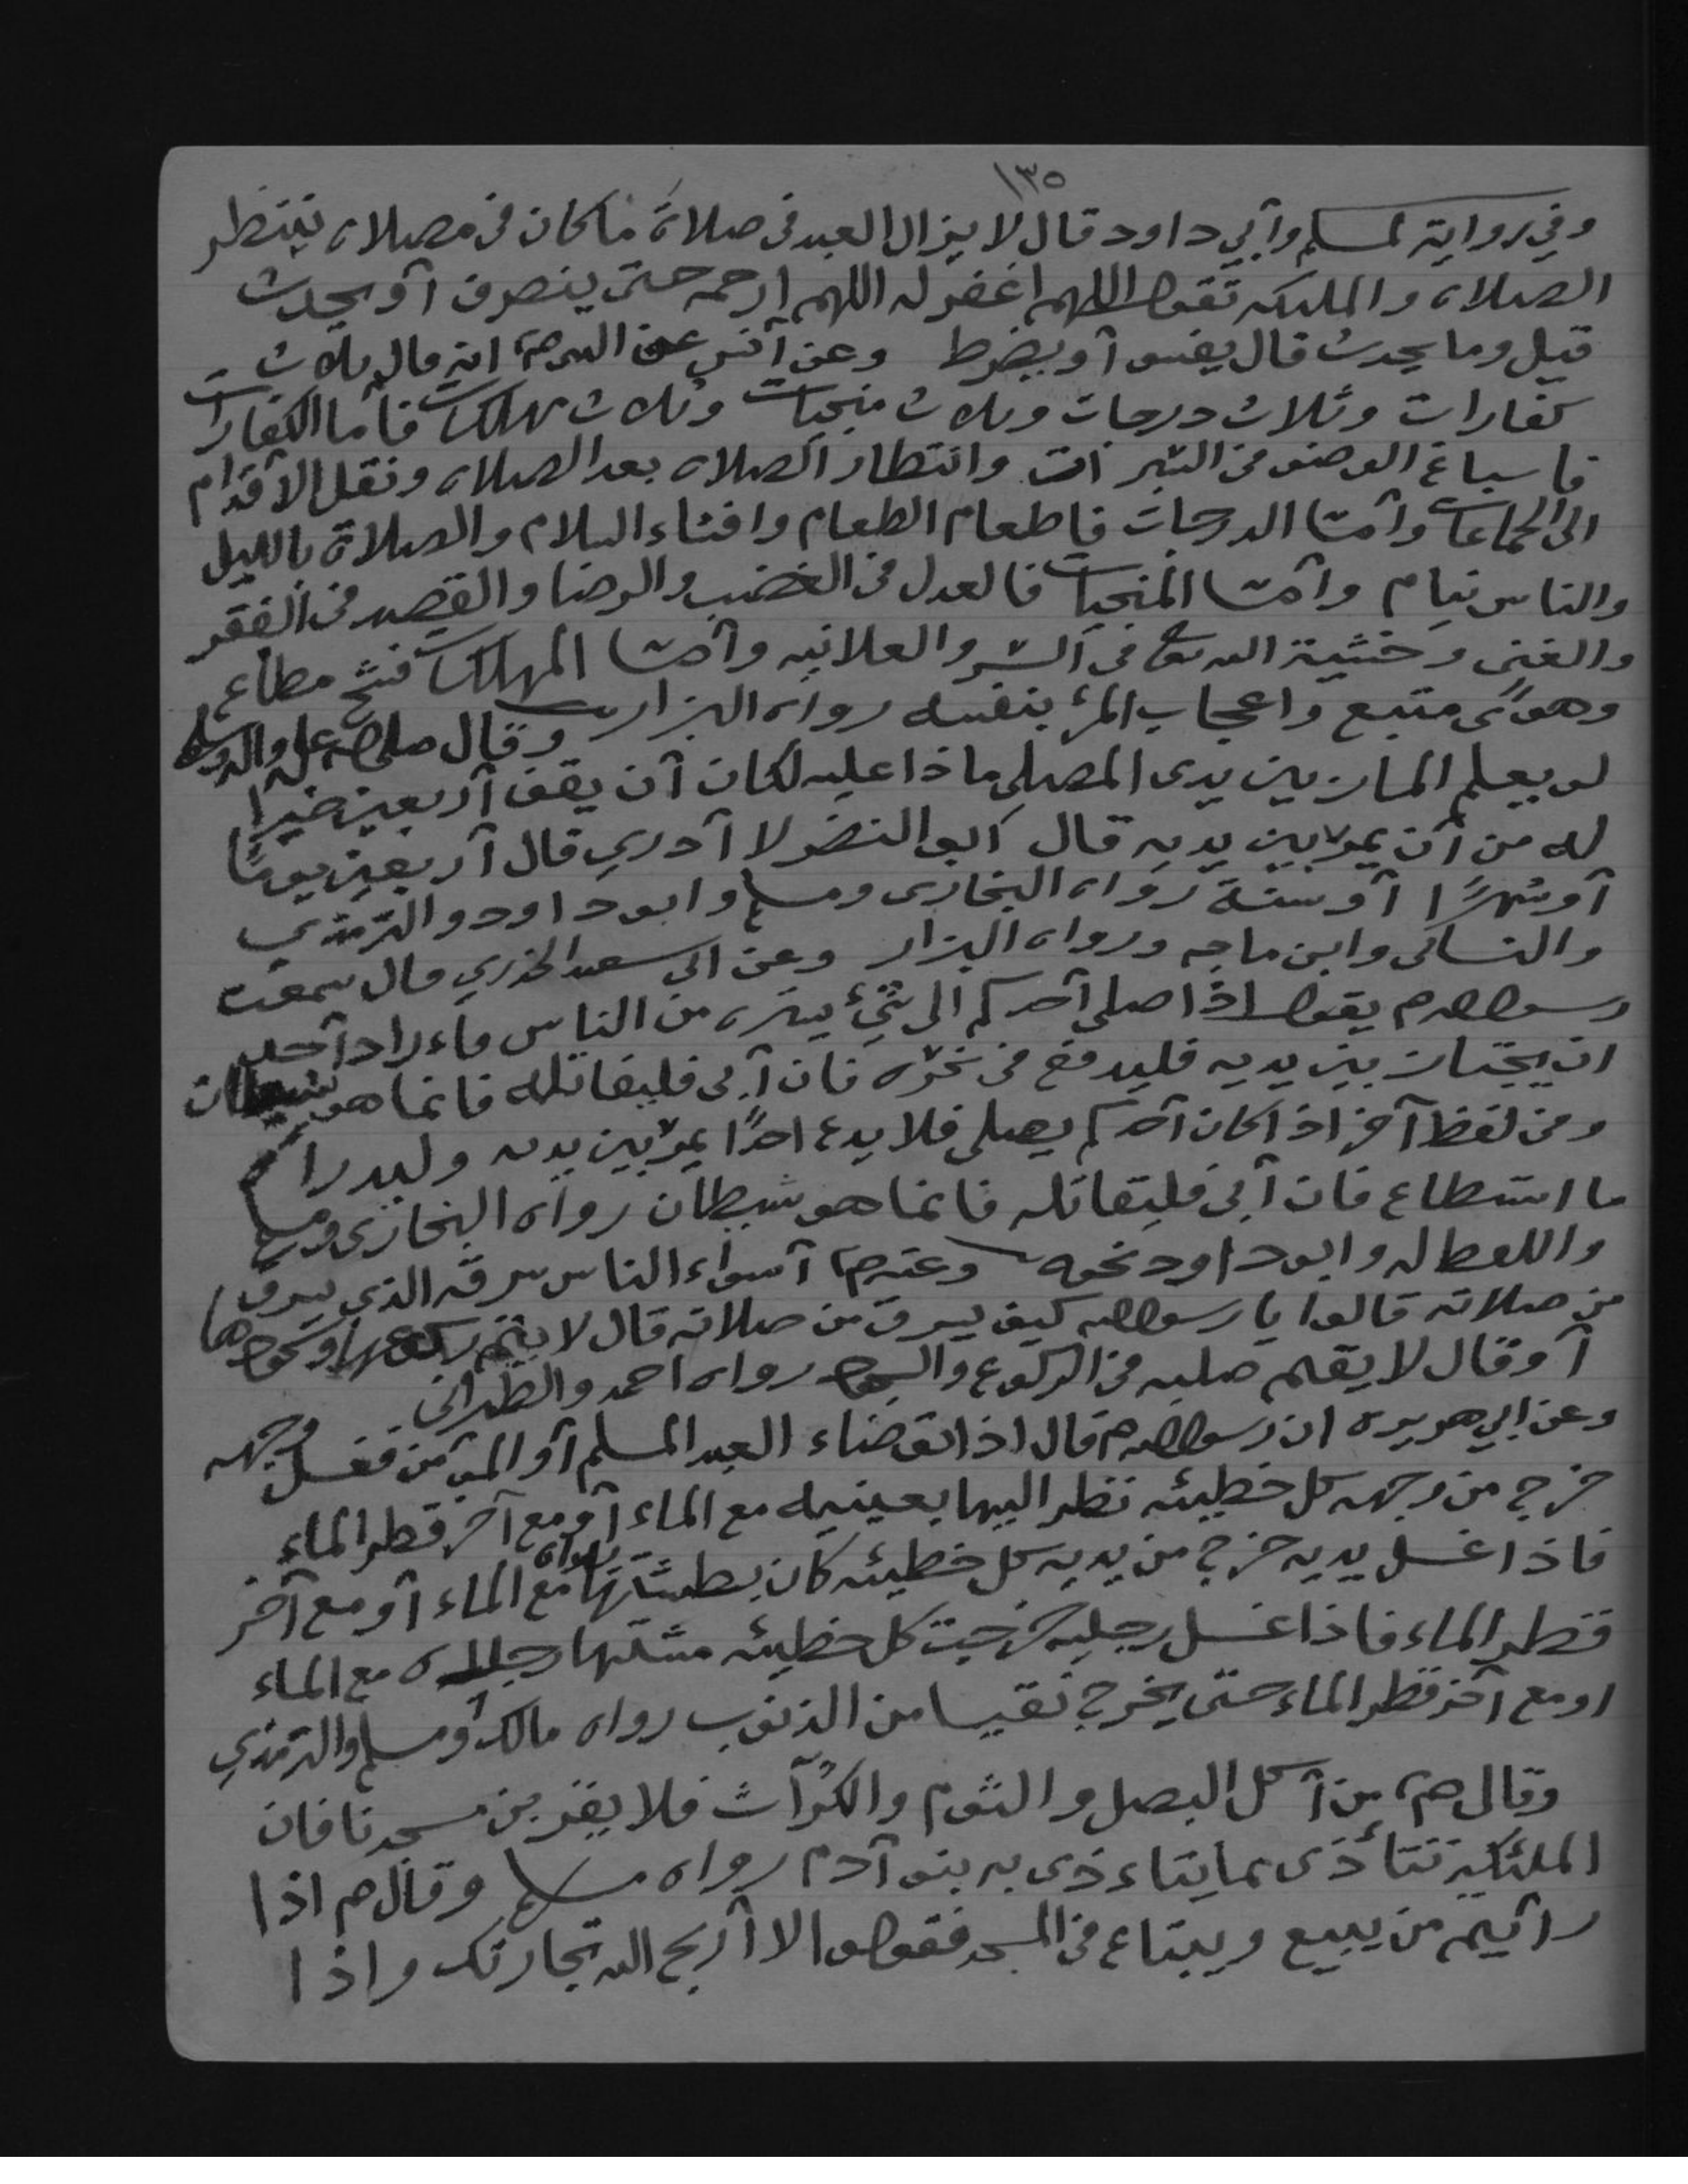 ١٣٥
وفي رواية لمسلم وأبي داود قال لا يزال العبد في صلاة ما كان في مصلاه ينتظر
الصلاه والمليكه تقول اللهم اغفر له اللهم ارحمه حتى ينصرف أو يحدث
قيل وما يحدث قال يفسو أو يضرط وعن أنس عن النبي صم انه قال ثلاث
كفارات وثلاث درجات وثلاث منجيات وثلاث مهلكات فأما الكفارات
فاسباغ الوضو في السبرات وانتظار الصلاه بعد الصلاه ونقل الأقدام
الى الجماعات وأما الدرجات فاطعام الطعام وافشاء السلام والصلاة بالليل
والناس نيام وأما المنجيات فالعدل في الغضب والرضا والقصد في الفقر
والغنى وخشية الله تعا في السر والعلانيه وأما المهلكات فشح مطاع
وهوًى متبع واعجاب المرء بنفسه رواه البزار وقال صلى الله عليه واله وسلم
لو يعلم المار بين يدى المصلى ماذا عليه لكان أن يقف أربعين خيرًا
له من أن يمر بين يديه قال أبو النضر لا أدري قال أربعين يومًا
أو شهرًا أو سنة رواه البخارى ومسلم وابو داود والترمذي
والنسائى وابن ماجه ورواه البزار وعن ابى سعيد الخدري قال سمعت
رسول الله م يقول اذا صلى أحدكم الى شيء يستره من الناس فاءراد أحد
ان يجتاز بين يديه فليدفع في نحره فان أبى فليقاتله فانما هو شيطان
وفي لفظ آخر اذا كان أحدكم يصلى فلا يدع احدًا يمر بين يديه وليدرأ
ما استطاع فان أبى فليقاتله فانما هو شيطان رواه البخارى ومسلم
واللفظ له وابو داود نحوه وعنه صم أسواء الناس سرقه الذي يسرق
من صلاته قالوا يا رسول الله كيف يسرق من صلاته قال لا يتم ركوعها وسجودها
أو قال لا يقيم صلبه في الركوع والسجود رواه احمد والطبرانى
وعن ابي هريره ان رسول الله م قال اذا توضاء العبد المسلم أو المؤمن فغسل وجهه
خرج من وجهه كل خطيئه نظر اليها بعينيه مع الماء أو مع آخر قطر الماء
فاذا غسل يديه خرج من يديه كل خطيئه كان بطشتها يداه مع الماء أو مع آخر
قطر الماء فاذا غسل رجليه خرجت كل خطيئه مشتها رجلاه مع الماء
او مع آخر قطر الماء حتى يخرج نقيا من الذنوب رواه مالك ومسلم والترمذي
وقال صم من أكل البصل والثوم والكرآث فلا يقربن مسجدنا فان
الملئكة تتأذى مما يتاءذى به بنو آدم رواه مسلم وقال م اذا
رأيتم من يبيع ويبتاع في المسجد فقولوا لا أربح الله تجارتك واذا